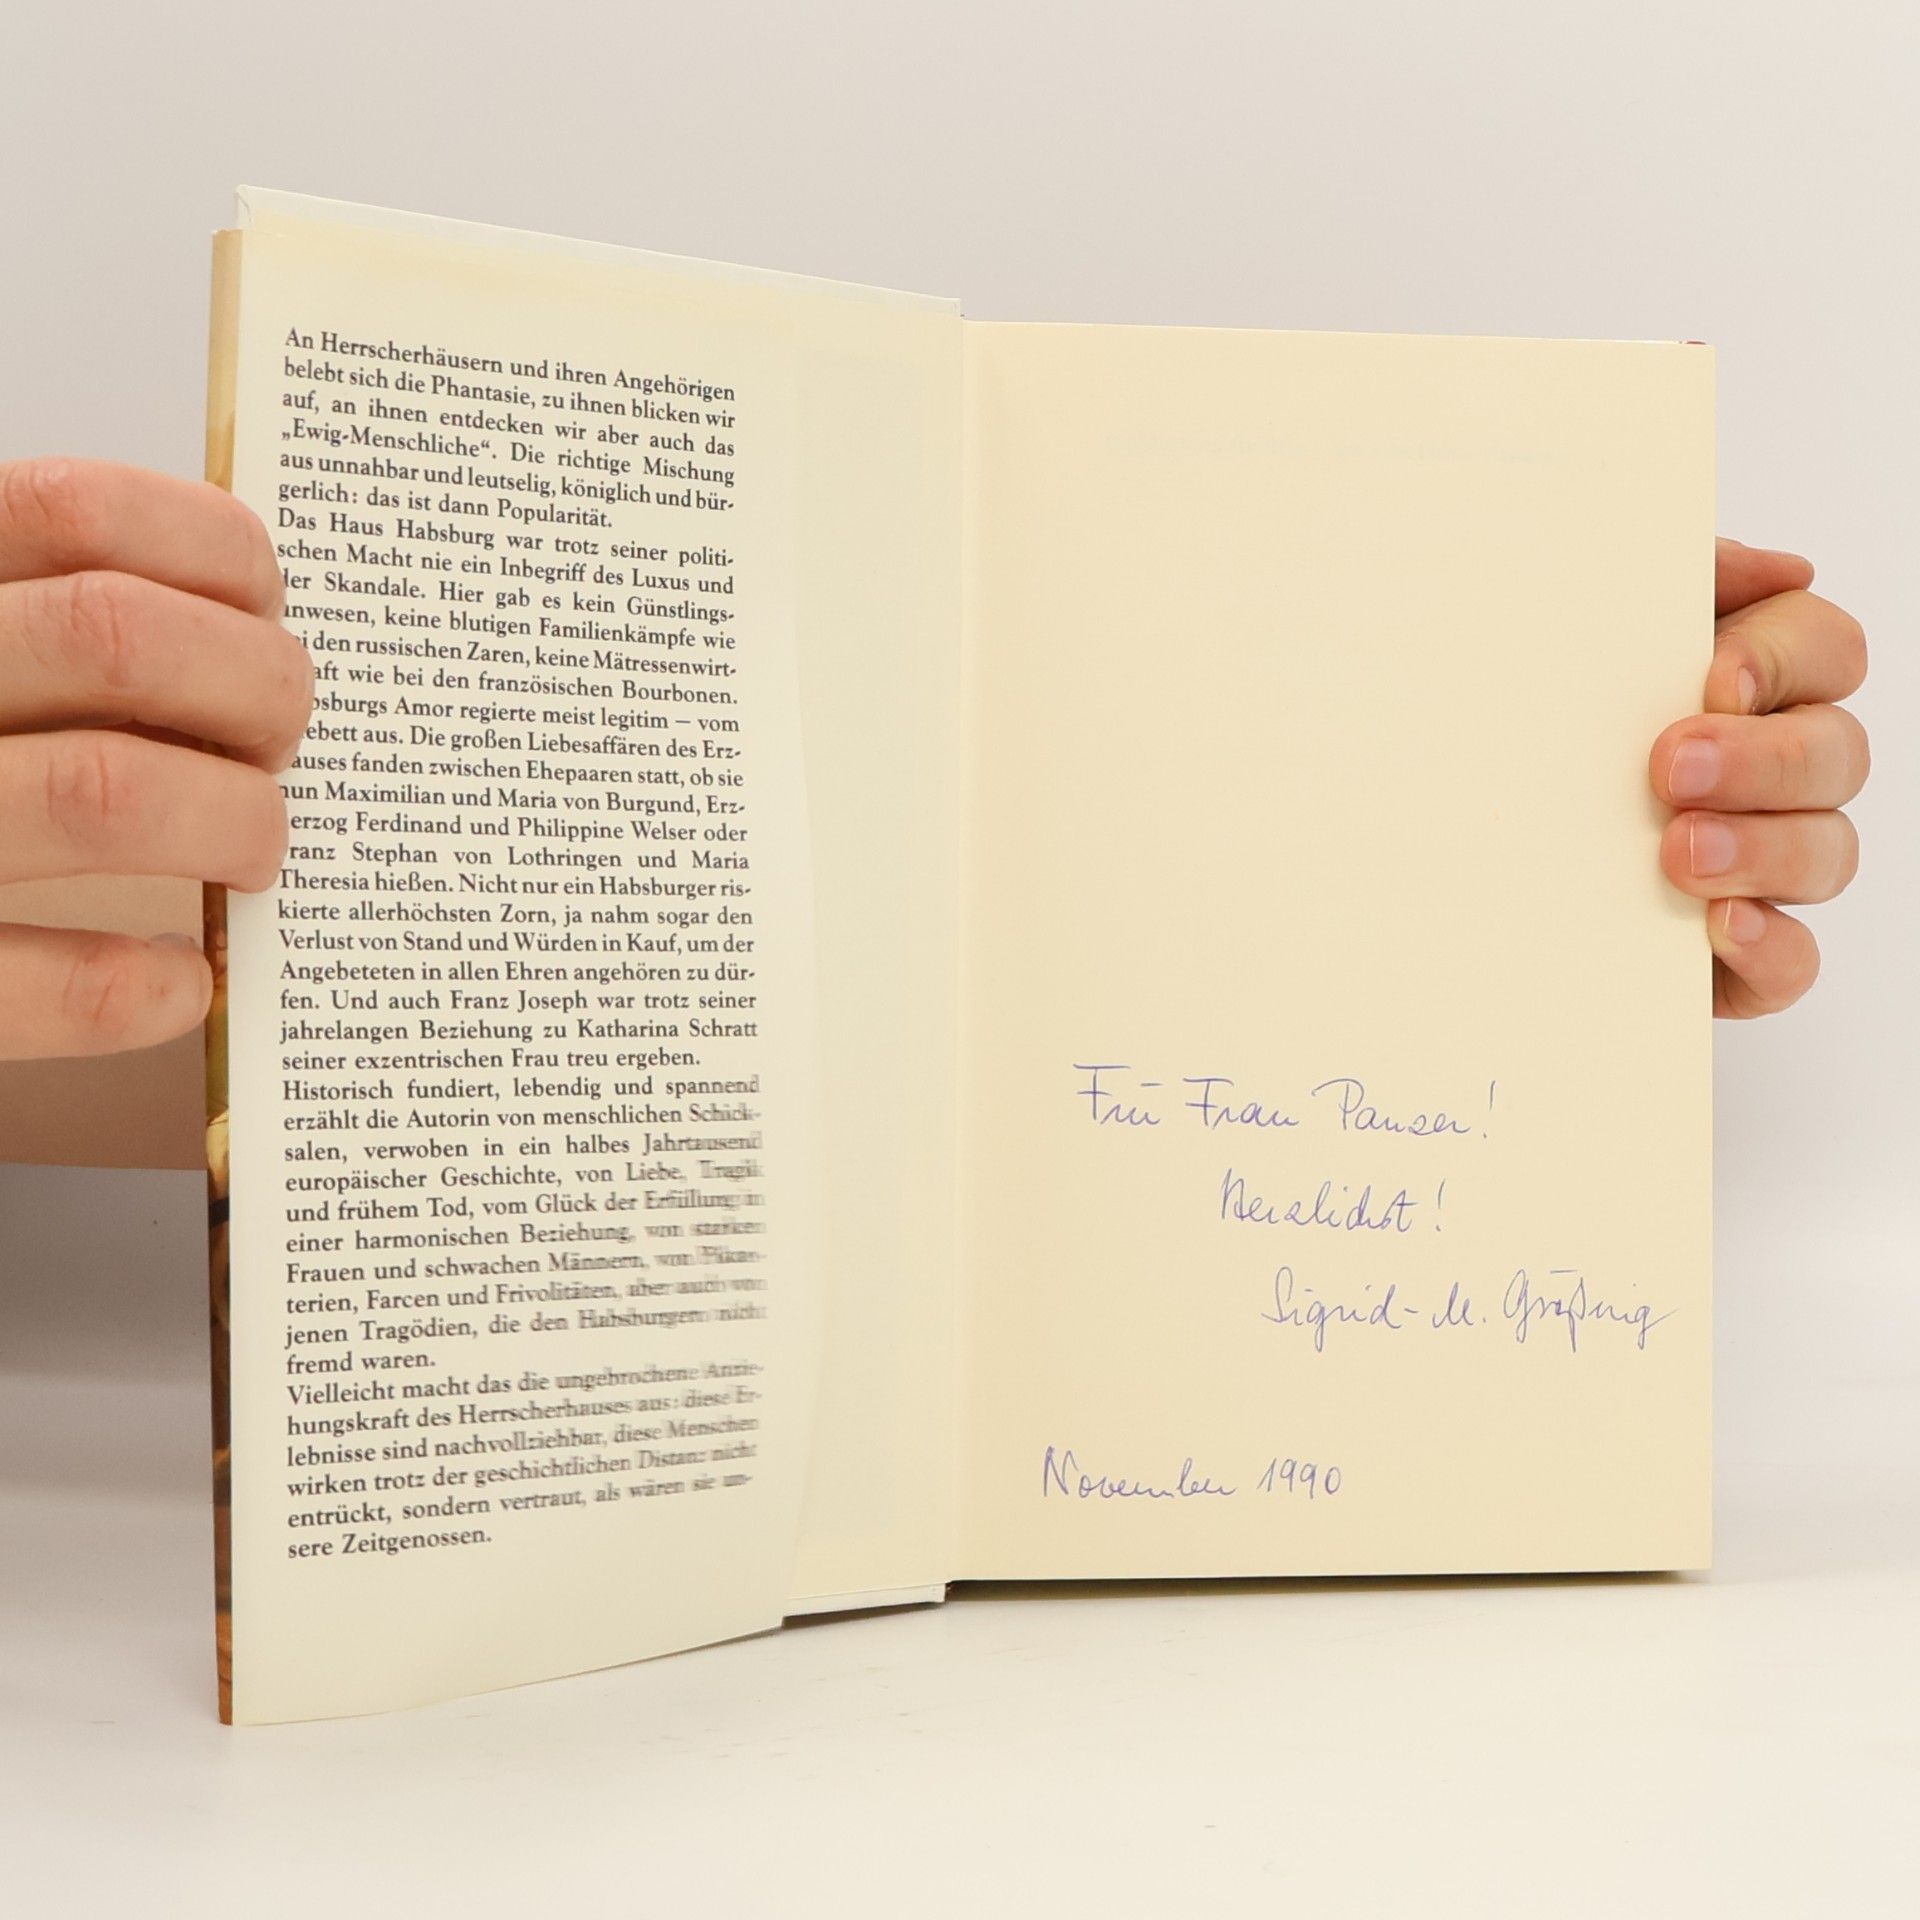 An Herrscherhäusern und ihren Angehörigen
belebt sich die Phantasie, zu ihnen blicken wir
auf, an ihnen entdecken wir aber auch das
„Ewig-Menschliche“. Die richtige Mischung
aus unnahbar und leutselig, königlich und bür-
gerlich: das ist dann Popularität.
Das Haus Habsburg war trotz seiner politi-
schen Macht nie ein Inbegriff des Luxus und
der Skandale. Hier gab es kein Günstlings-
unwesen, keine blutigen Familienkämpfe wie
bei den russischen Zaren, keine Mätressenwirt-
aft wie bei den französischen Bourbonen.
bsburgs Amor regierte meist legitim – vom
ebett aus. Die großen Liebesaffären des Erz-
auses fanden zwischen Ehepaaren statt, ob sie
nun Maximilian und Maria von Burgund, Erz-
erzog Ferdinand und Philippine Welser oder
ranz Stephan von Lothringen und Maria
Theresia hießen. Nicht nur ein Habsburger ris-
kierte allerhöchsten Zorn, ja nahm sogar den
Verlust von Stand und Würden in Kauf, um der
Angebeteten in allen Ehren angehören zu dür-
fen. Und auch Franz Joseph war trotz seiner
jahrelangen Beziehung zu Katharina Schratt
seiner exzentrischen Frau treu ergeben.
Historisch fundiert, lebendig und spannend
erzählt die Autorin von menschlichen Schick-
salen, verwoben in ein halbes Jahrtausend
europäischer Geschichte, von Liebe, Tragik
und frühem Tod, vom Glück der Erfüllung in
einer harmonischen Beziehung, von starken
Frauen und schwachen Männern, von Pikan-
terien, Farcen und Frivolitäten, aber auch von
jenen Tragödien, die den Habsburgern nicht
fremd waren.
Vielleicht macht das die ungebrochene Anzie-
hungskraft des Herrscherhauses aus: diese Er-
lebnisse sind nachvollziehbar, diese Menschen
wirken trotz der geschichtlichen Distanz nicht
entrückt, sondern vertraut, als wären sie un-
sere Zeitgenossen.
Für Frau Panzer!
Herzlichst!
Sigrid-M. Größing
November 1990